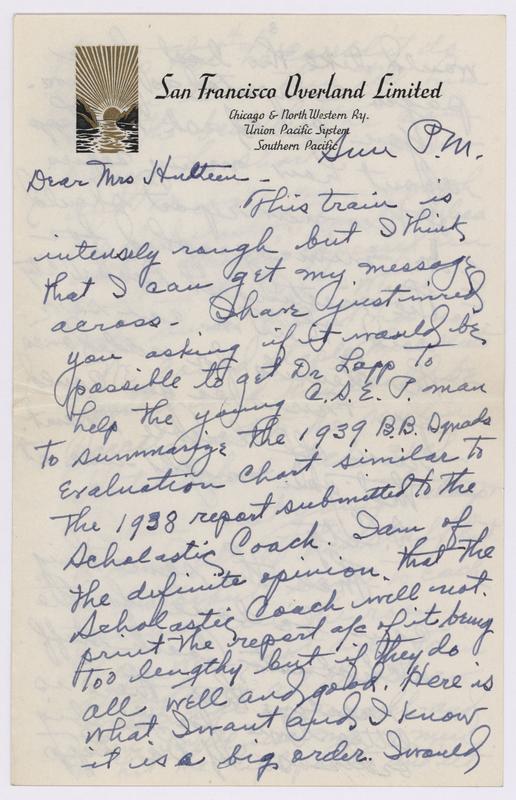 San Francisco Overland Limited
Chicago & North Western Ry.
Union Pacific System
Southern Pacific
Sun P.M.
Dear Mrs Hulteen -
This train is
intensely rough but I think
that I can get my message
across - I have just wired
you asking if it would be
possible to get Dr Lapp to
help the young C.S.E.P. man
to summarize the 1939 B.B. Squads
Evaluation Chart similar to
the 1938 report submitted to the
Scholastic Coach. I am of
the definite opinion that the
Scholastic Coach will not
print the report a/c of it being
too lengthy but if they do
all well and good. Here is
what I want and I know
it is a big order. I would